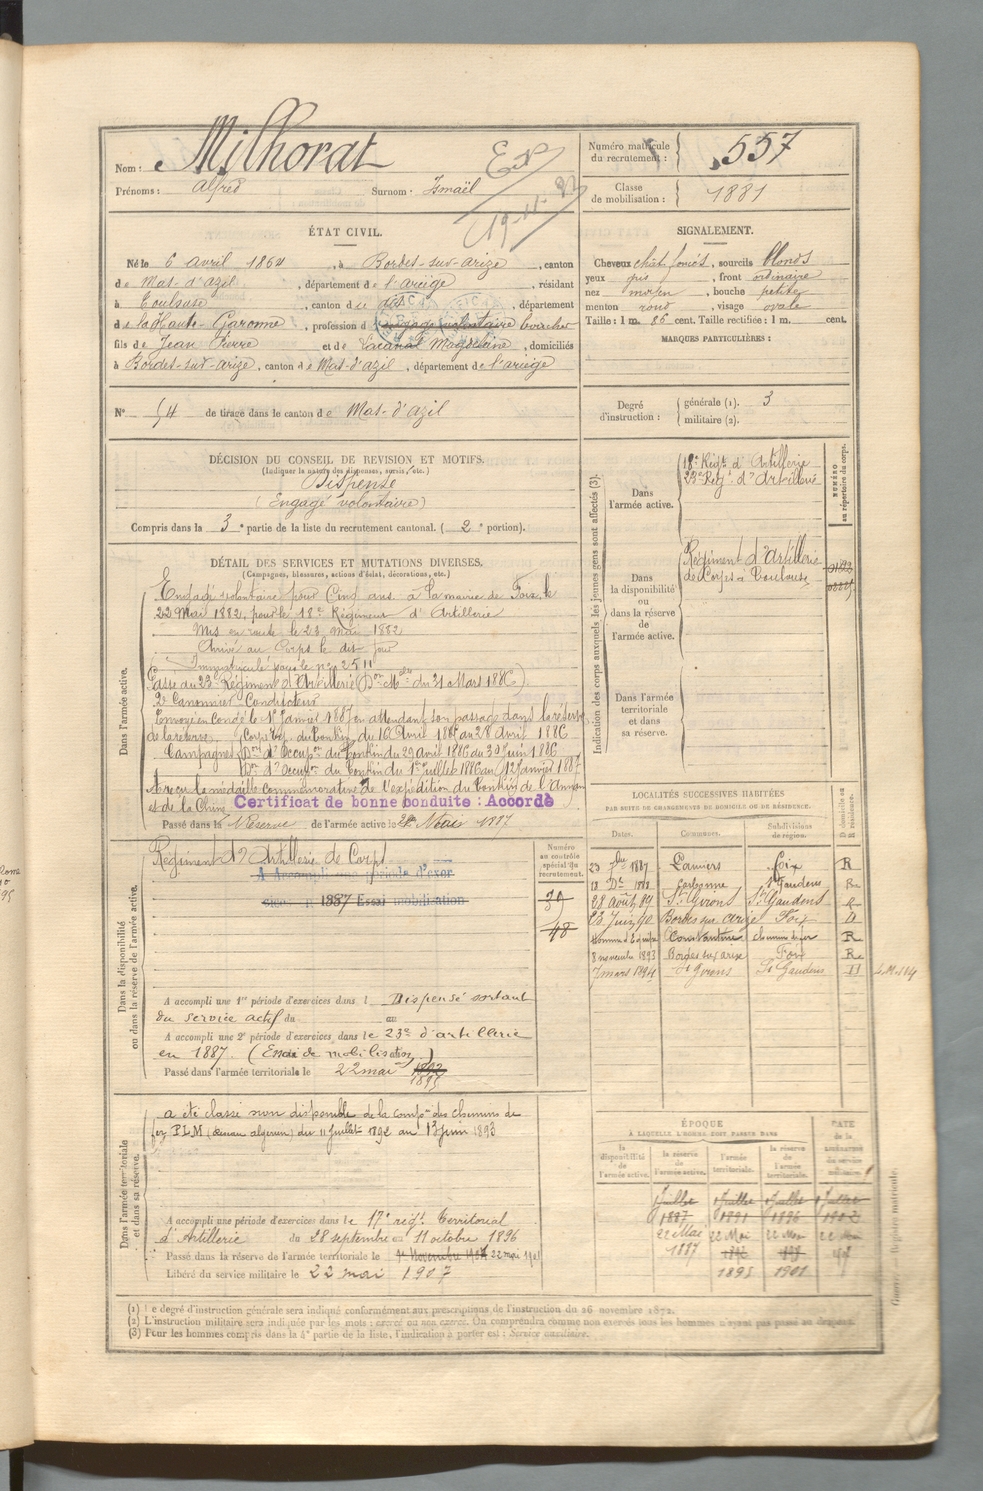 Nom : Milhorat
Prénoms : Alfred Surnom : Ismaël
Numéro matricule du recrutement : 557
Classe de mobilisation : 1881
ÉTAT CIVIL.
Né le 6 avril 1864, à Bordes-sur-arize, canton
de Mas-d'azil, département de l'ariège, résidant
à Toulouse, canton du dit, département
de la Haute-Garonne, profession d'engagé volontaire boucher
fils de Jean Pierre et de Lacanal Magdelaine, domiciliés
à Bordes-sur-arize, canton de Mas-d'azil, département de l'ariège
SIGNALEMENT.
Cheveux chât. foncés, sourcils blonds
yeux gris, front ordinaire
nez moyen, bouche petite
menton rond, visage ovale
Taille : 1 m. 86 cent. Taille rectifiée : 1 m. cent.
MARQUES PARTICULIÈRES :
N° 54 de tirage dans le canton de Mas-d'azil
Degré d'instruction : générale (1). 3
militaire (2).
DÉCISION DU CONSEIL DE REVISION ET MOTIFS.
(Indiquer la nature des dispenses, sursis, etc.)
Dispensé
(Engagé volontaire)
Compris dans la 3e partie de la liste du recrutement cantonal. (2e portion).
DÉTAIL DES SERVICES ET MUTATIONS DIVERSES.
(Campagnes, blessures, actions d'éclat, décorations, etc.)
Dans l'armée active.
Engagé volontaire pour Cinq ans à la mairie de Foix, le
22 Mai 1882, pour le 18e Régiment d'Artillerie
Mis en route le 23 mai 1882
Arrivé au Corps le dit jour
Immatriculé sous le n° 2511
Passé au 23e Régiment d'Artillerie (Don Mlle du 21 Mars 1886)
2e Canonnier Conducteur
Envoyé en Congé le 1er janvier 1887 en attendant son passage dans la réserve
Corps exp. du Tonkin du 16 Avril 1886 au 28 avril 1886
Campagnes Don d'Occupon du Tonkin du 29 avril 1886 au 30 Juin 1886
Don d'Occupon du Tonkin du 1er juillet 1886 au 12 janvier 1887
A reçu la médaille commémorative de l'expédition du Tonkin de l'Annam
et de la Chine Certificat de bonne conduite : Accordé
Passé dans la Réserve de l'armée active le 22 Mai 1887
Indication des corps auxquels les jeunes gens sont affectés (3).
NUMÉRO au répertoire du corps.
Dans l'armée active.
18e Régt d'Artillerie
23e Régt d'Artillerie
Dans la disponibilité ou dans la réserve de l'armée active.
Régiment d'Artillerie
de Corps à Toulouse
Dans l'armée territoriale et dans sa réserve.
Dans la disponibilité ou dans la réserve de l'armée active.
Régiment d'Artillerie de Corps
A Accompli une période d'exer-
1887 Essai mobilisation
Numéro au contrôle spécial du recrutement.
48
A accompli une 1re période d'exercices dans l Dispensé sortant
du service actif du au
A accompli une 2e période d'exercices dans le 23e d'artillerie
en 1887. (Essai de mobilisation)
Passé dans l'armée territoriale le 22 mai 1892
1895
LOCALITÉS SUCCESSIVES HABITÉES
PAR SUITE DE CHANGEMENTS DE DOMICILE OU DE RÉSIDENCE.
Dates. Communes. Subdivisions de région. D domicile ou R résidence.
23 1887 Pamiers Foix R
18 1888 St Gaudens R
28 août 89 St Girons St Gaudens R
23 Juin 90 Bordes sur arize Foix
Constantine chemins de fer R
8 novembre 1893 Bordes sur arize Foix R
7 mars 1894 St Girons St Gaudens
Dans l'armée territoriale et dans sa réserve.
a été classé non disponible de la Compie des chemins de
fer PLM (réseau algérien) du 11 Juillet 1892 au 13 juin 1893
A accompli une période d'exercices dans le 17e régt. territorial
d'Artillerie du 28 septembre au 11 octobre 1896
Passé dans la réserve de l'armée territoriale le 22 mai 1901
Libéré du service militaire le 22 mai 1907
ÉPOQUE
À LAQUELLE L'HOMME DOIT PASSER DANS
la disponibilité de l'armée active. la réserve de l'armée active. l'armée territoriale. la réserve de l'armée territoriale. DATE de la libération du service militaire.
Juillet 1887 Juillet 1891 Juillet 1896 Juillet 1902
22 Mai 1887 22 Mai 22 Mai 22 Mai
1895 1901
(1) Le degré d'instruction générale sera indiqué conformément aux prescriptions de l'instruction du 26 novembre 1872.
(2) L'instruction militaire sera indiquée par les mots : exercé ou non exercé. On comprendra comme non exercés tous les hommes n'ayant pas passé au drapeau.
(3) Pour les hommes compris dans la 4e partie de la liste, l'indication à porter est : Service auxiliaire.